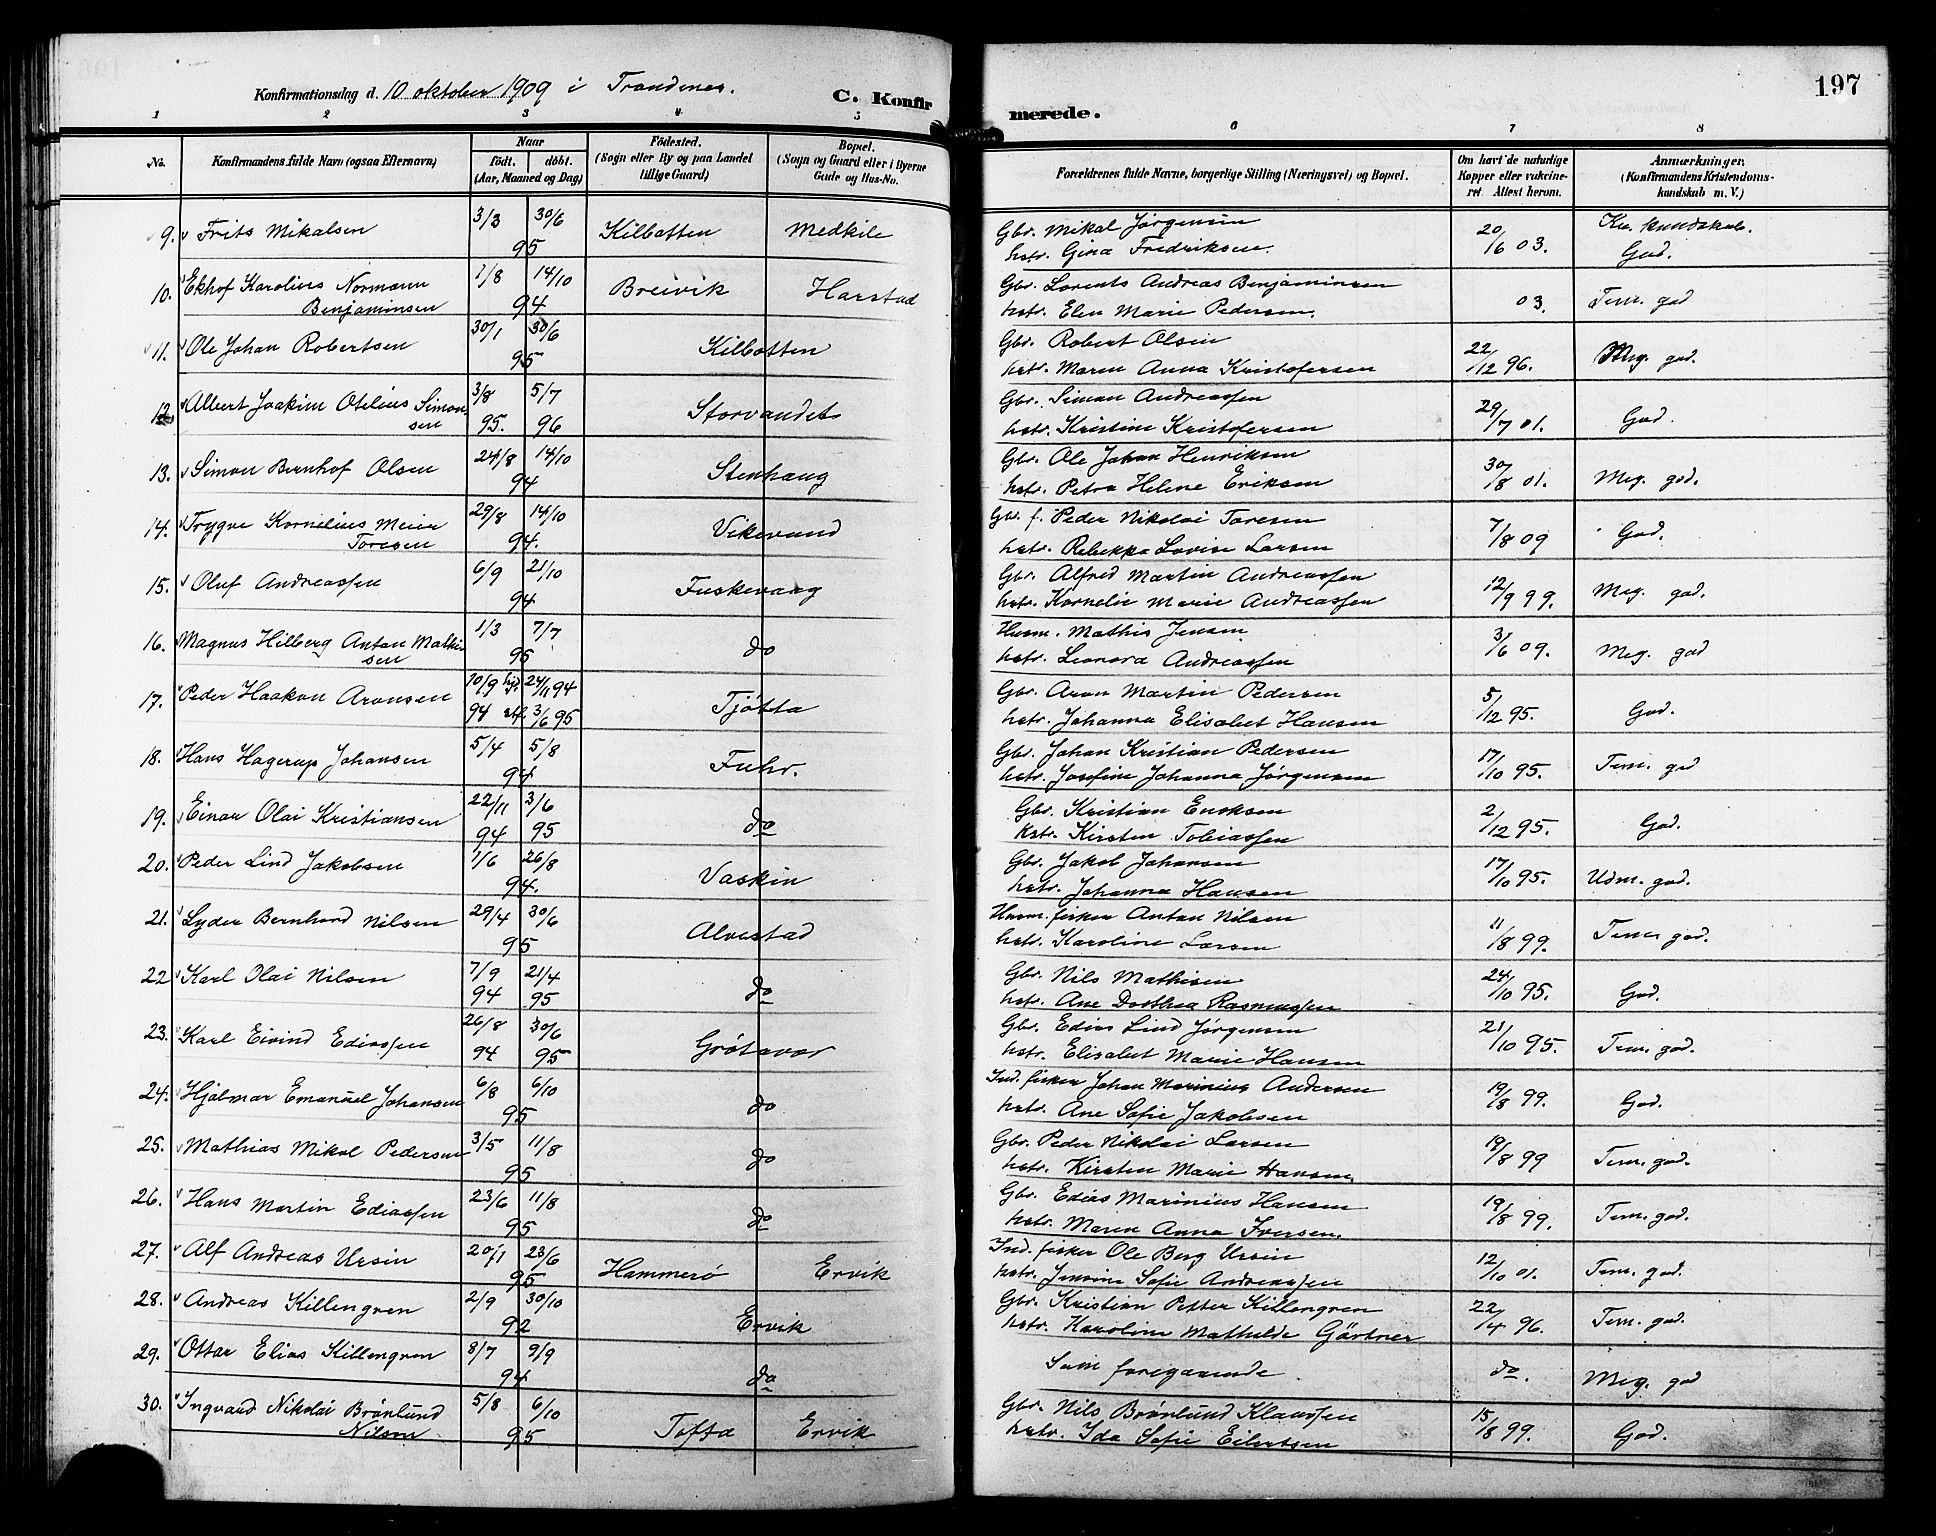 197
Konfirmationsdag d. 10 oktober 1909 i Trondenes.
C. Konfirmerede.
1 2 3 4 5 6 7 8
No.
Konfirmandens fulde Navn (ogsaa Efternavn)
Naar
födt. döbt.
(Aar, Maaned og Dag)
Födested.
(Sogn eller By og paa Landet
tillige Gaard)
Bopæl.
(Sogn og Gaard eller i Byerne
Gade og Hus-No.
Forældrenes fulde Navne, borgerlige Stilling (Næringsvei) og Bopæl.
Om havt de naturlige
Kopper eller vakcineret. Attest herom.
Anmærkninger.
(Konfirmandens Kristendomskundskab m. V.)
9. Frits Mikalsen 3/3 30/6 95 Kilbotten Medkile
Gbr. Mikal Jørgensen 20/6 03. Kr. kundskab.
hstr. Gina Fredriksen. God.
10. Ekhof Karolius Normann 1/8 14/10 Breivik Harstad
Benjaminsen 94
Gbr. Lorents Andreas Benjaminsen
hstr. Elen Marie Pedersen. 03. Tem. god
11. Ole Johan Robertsen 30/1 30/6 95 Kilbotten
Gbr. Robert Olsen
hstr. Maren Anna Kristofersen 22/12 96. Meg. god
12. Albert Joakim Otelius Simonsen 3/8 95. 5/7 96 Storvandet
Gbr. Simon Andreassen
hstr. Kristine Kristofersen 29/7 01. God.
13. Simon Bernhof Olsen 24/8 14/10 94 Stenhaug
Gbr. Ole Johan Henriksen
hstr. Petra Helene Eriksen 30/8 01. Meg. god.
14. Trygve Kornelius Meier 29/8 14/10
Toresen 94. Vikevand
Gbr. f. Peder Nikolai Toresen
hstr. Rebekka Lovise Larsen 7/8 09 God.
15. Oluf Andreassen 6/9 21/10 94 Fuskevaag
Gbr. Alfred Martin Andreassen
hstr. Kornelie Marie Andreassen 12/9 99. Meg. god.
16. Magnus Hilberg Anton Mathisen 1/3 7/7 95 do
Husm. Mathis Jensen
hstr. Leonora Andreassen 3/6 09. Meg. god
17. Peder Haakon Aronsen 10/9 94 hjd. 24/11 94 stf. 3/6 95 Tjøtta
Gbr. Aron Martin Pedersen
hstr. Johanna Elisabet Hansen 5/12 95. God.
18. Hans Hagerup Johansen 5/4 5/8 94 Fuhr.
Gbr. Johan Kristian Pedersen
hstr. Josefine Johanna Jørgensen 17/10 95. Tem. god
19. Einar Olai Kristiansen 22/11 94 3/6 95 do
Gbr. Kristian Enoksen
hstr. Kirsten Tobiassen 2/12 95. God.
20. Peder Lind Jakobsen 1/6 26/8 94. Vaskin
Gbr. Jakob Johansen
hstr. Johanna Hansen 17/10 95. Udm. god.
21. Lyder Bernhard Nilsen 29/4 30/6 95 Alvestad
Husm. fisker Anton Nilsen
hstr. Karoline Larsen 11/8 99. Tem god.
22 Karl Olai Nilsen 7/9 94 21/4 95 do
Gbr. Nils Mathisen
hstr. Ane Dorthea Rasmussen 24/10 95. God.
23. Karl Eivind Ediassen 26/8 94 30/6 95 Grøtavær
Gbr. Edias Lind Jørgensen
hstr. Elisabet Marie Hansen 21/10 95. Tem. god.
24. Hjalmar Emanuel Johansen 6/8 6/10 95 do
Ind. fisker Johan Marinius Andersen
hstr. Ane Sofie Jakobsen 19/8 99. God.
25. Mathias Mikal Pedersen 3/5 11/8 95 do
Gbr. Peder Nikolai Larsen
hstr. Kirsten Marie Hansen 19/8 99 Tem. god.
26. Hans Martin Ediassen 23/6 11/8 95 do
Gbr. Edias Marinius Hansen
hstr. Maren Anna Iversen. 19/8 99. Tem. god.
27. Alf Andreas Ursin 20/1 23/6 95 Hammerø Ervik
Ind. fisker Ole Berg Ursin
hstr. Jensine Sofie Andreassen 12/10 01. Tem. god.
28. Andreas Killengren 2/9 30/10 92 Ervik
Gbr. Kristian Petter Killengren
hstr. Karoline Mathilde Gärtner 22/4 96. Tem. god.
29. Ottar Elias Killengren 8/7 9/9 94 do
Som foregaaende do. Meg. god
30. Ingvard Nikolai Brønlund 5/8 6/10
Nilsen 95 Tofta Ervik
Gbr. Nils Brønlund Klaussen
hstr. Ida Sofie Eilertsen 15/8 99. God.